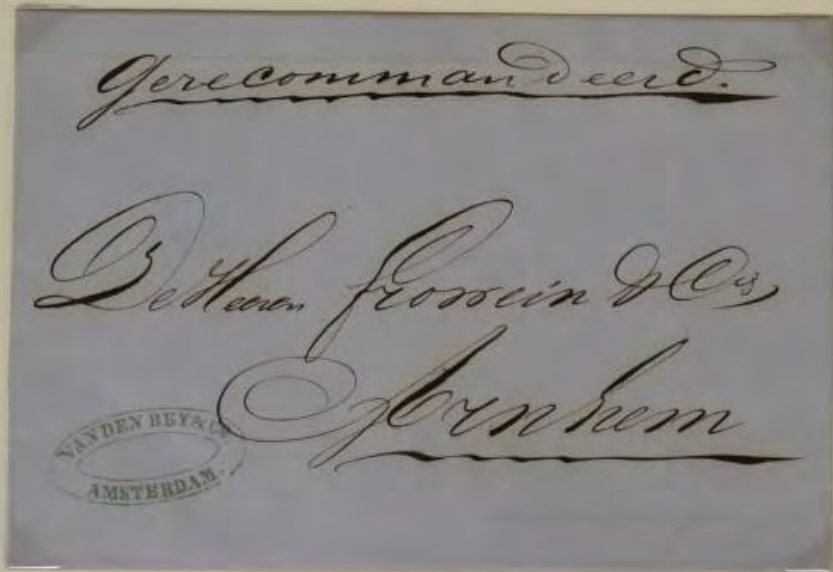 Gerecommandeerd.
De Heeren Frowein & Cie
Arnhem
VAN DEN BEY & Co
AMSTERDAM.